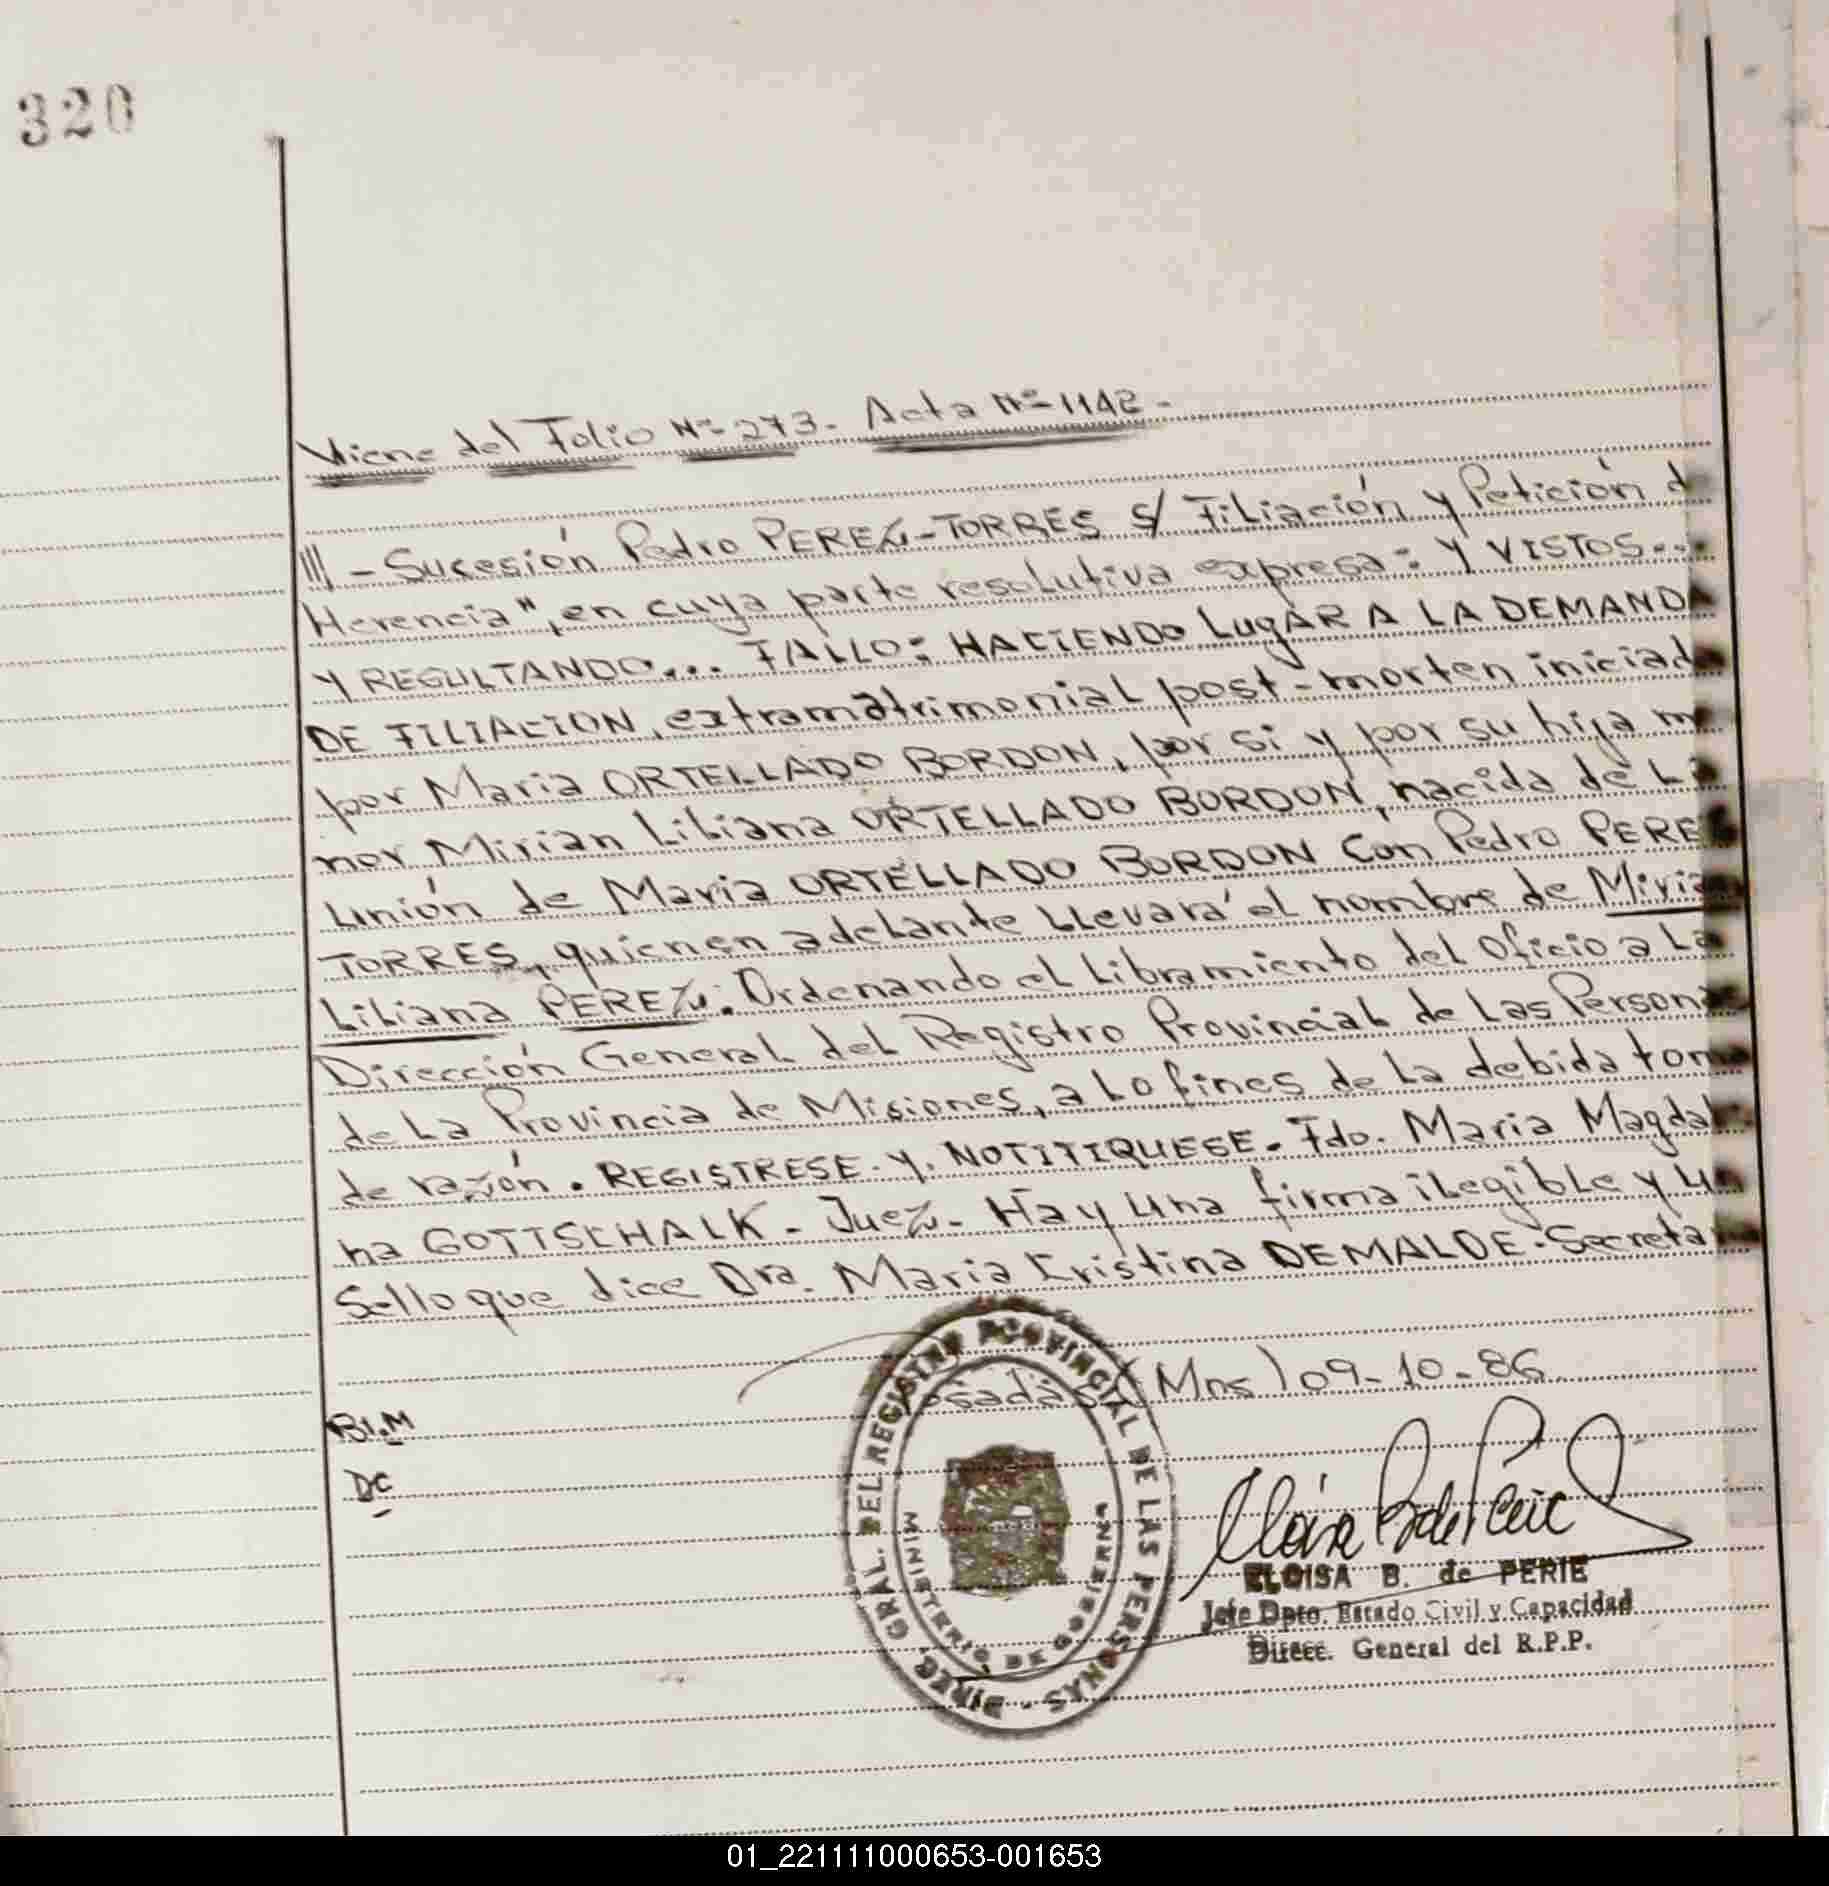 320
Viene del Folio Nº 273. Acta Nº 1142.
/// - Sucesión Pedro PEREZ-TORRES S/ Filiación y Petición d
Herencia", en cuya parte resolutiva expresa: Y VISTOS...
Y RESULTANDO... FALLO: HACIENDO LugAR A LA DEMANDA
DE FILIACION, extramatrimonial post-morten iniciada
por Maria ORTELLADO BORDON, por si y por su hija me
nor Mirian Liliana ORTELLADO BORDON, nacida de La
unión de Maria ORTELLADO BORDON Con Pedro PEREZ
TORRES, quienen adelante llevará el nombre de Mirian
Liliana PEREZ. Ordenando el Libramiento del Oficio a La
Dirección General del Registro Provincial de Las Personas
de La Provincia de Misiones, a Lo fines de La debida toma
de razón. REGISTRESE. Y. NOTITIQUESE. Fdo. Maria Magdale
na GOTTSCHALK - Juez. Hay una firma ilegible y un
Sello que dice Dra. Maria Cristina DEMALDE. Secretaria
Posadas (Mns) 09-10-86.
BI.M
DC
DIREC. GRAL. DEL REGISTRO PROVINCIAL DE LAS PERSONAS
MINISTERIO DE GOBIERNO
ELOISA B. de PERIE
Jefe Dpto. Estado Civil y Capacidad
Direcc. General del R.P.P.
01_221111000653-001653